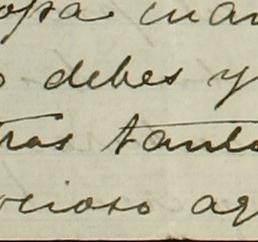 opa cuan
o debes y
tras tanto
ocioso aq